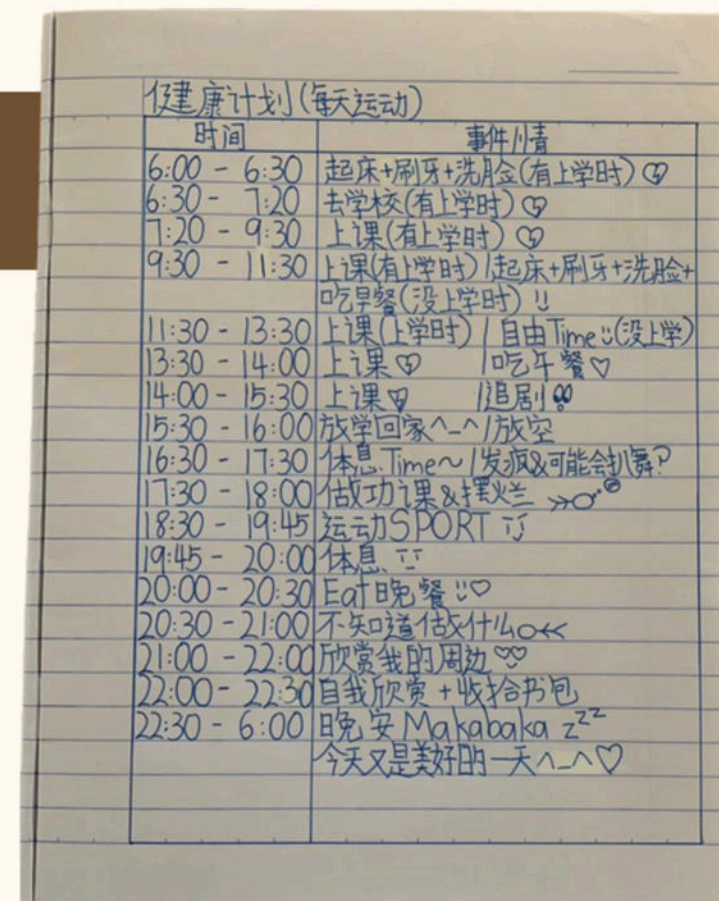 健康计划(每天运动)
时间 事件/情
6:00 - 6:30 起床+刷牙+洗脸(有上学时)
6:30 - 7:20 去学校(有上学时)
7:20 - 9:30 上课(有上学时)
9:30 - 11:30 上课(有上学时)/起床+刷牙+洗脸+
吃早餐(没上学时)
11:30 - 13:30 上课(上学时) / 自由Time(没上学)
13:30 - 14:00 上课 /吃午餐
14:00 - 15:30 上课 /追剧
15:30 - 16:00 放学回家^_^/放空
16:30 - 17:30 休息Time~ /发疯&可能会扒舞?
17:30 - 18:00 做功课&摆烂
18:30 - 19:45 运动SPORT
19:45 - 20:00 休息
20:00 - 20:30 Eat晚餐
20:30 - 21:00 不知道做什么
21:00 - 22:00 欣赏我的周边
22:00 - 22:30 自我欣赏+收拾书包
22:30 - 6:00 晚安Makabaka zzz
今天又是美好的一天^_^